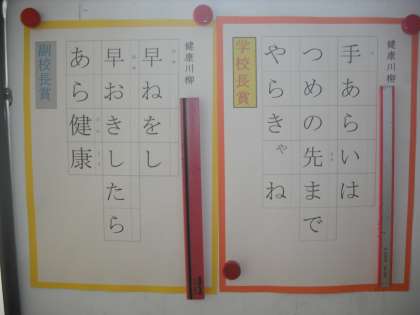 健康川柳
手あらいは
つめの先まで
やらきゃね
学校長賞
健康川柳
早ねをし
早おきしたら
あら健康
副校長賞